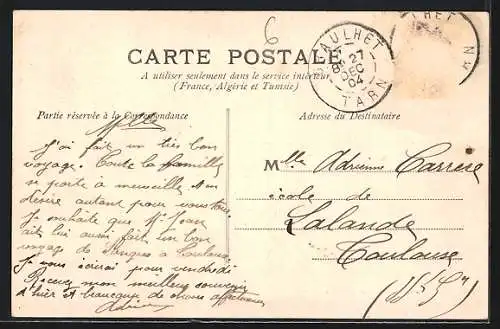 6
CARTE POSTALE
A utiliser seulement dans le service intérieur
(France, Algérie et Tunisie)
GRAULHET
27
DEC
04
TARN
Partie réservée à la Correspondance
Adresse du Destinataire
Mlle
J'ai fait un très bon
voyage. Toute la famille
se porte à merveille &
désire autant pour vous tous.
Je souhaite que Mr Jean
ait lui aussi fait un bon
voyage de à Toulouse
Je vous écrirai pour vendredi
Recevez mon meilleur souvenir
d'hier et beaucoup de choses affectueuses
Mlle Adrienne Carrese
école de
Lalande
Toulouse
(Hte Gne)